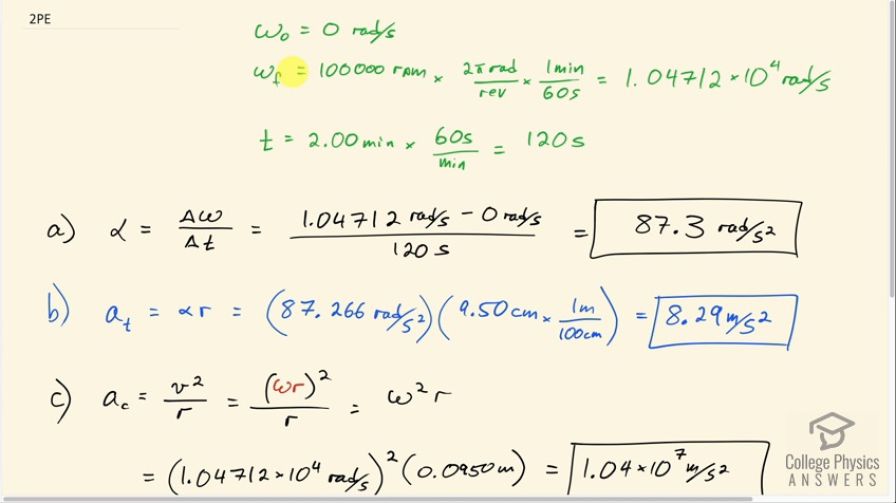 2PE
ω₀ = 0 rad/s
ω_f = 100000 rpm × 2π rad/rev × 1min/60s = 1.04712 × 10⁴ rad/s
t = 2.00 min × 60s/min = 120 s
a) α = Δω/Δt = (1.04712 rad/s − 0 rad/s)/120 s = 87.3 rad/s²
b) a_t = αr = (87.266 rad/s²)(9.50 cm × 1m/100cm) = 8.29 m/s²
c) a_c = v²/r = (ωr)²/r = ω²r
= (1.04712 × 10⁴ rad/s)² (0.0950 m) = 1.04 × 10⁷ m/s²
College Physics
ANSWERS